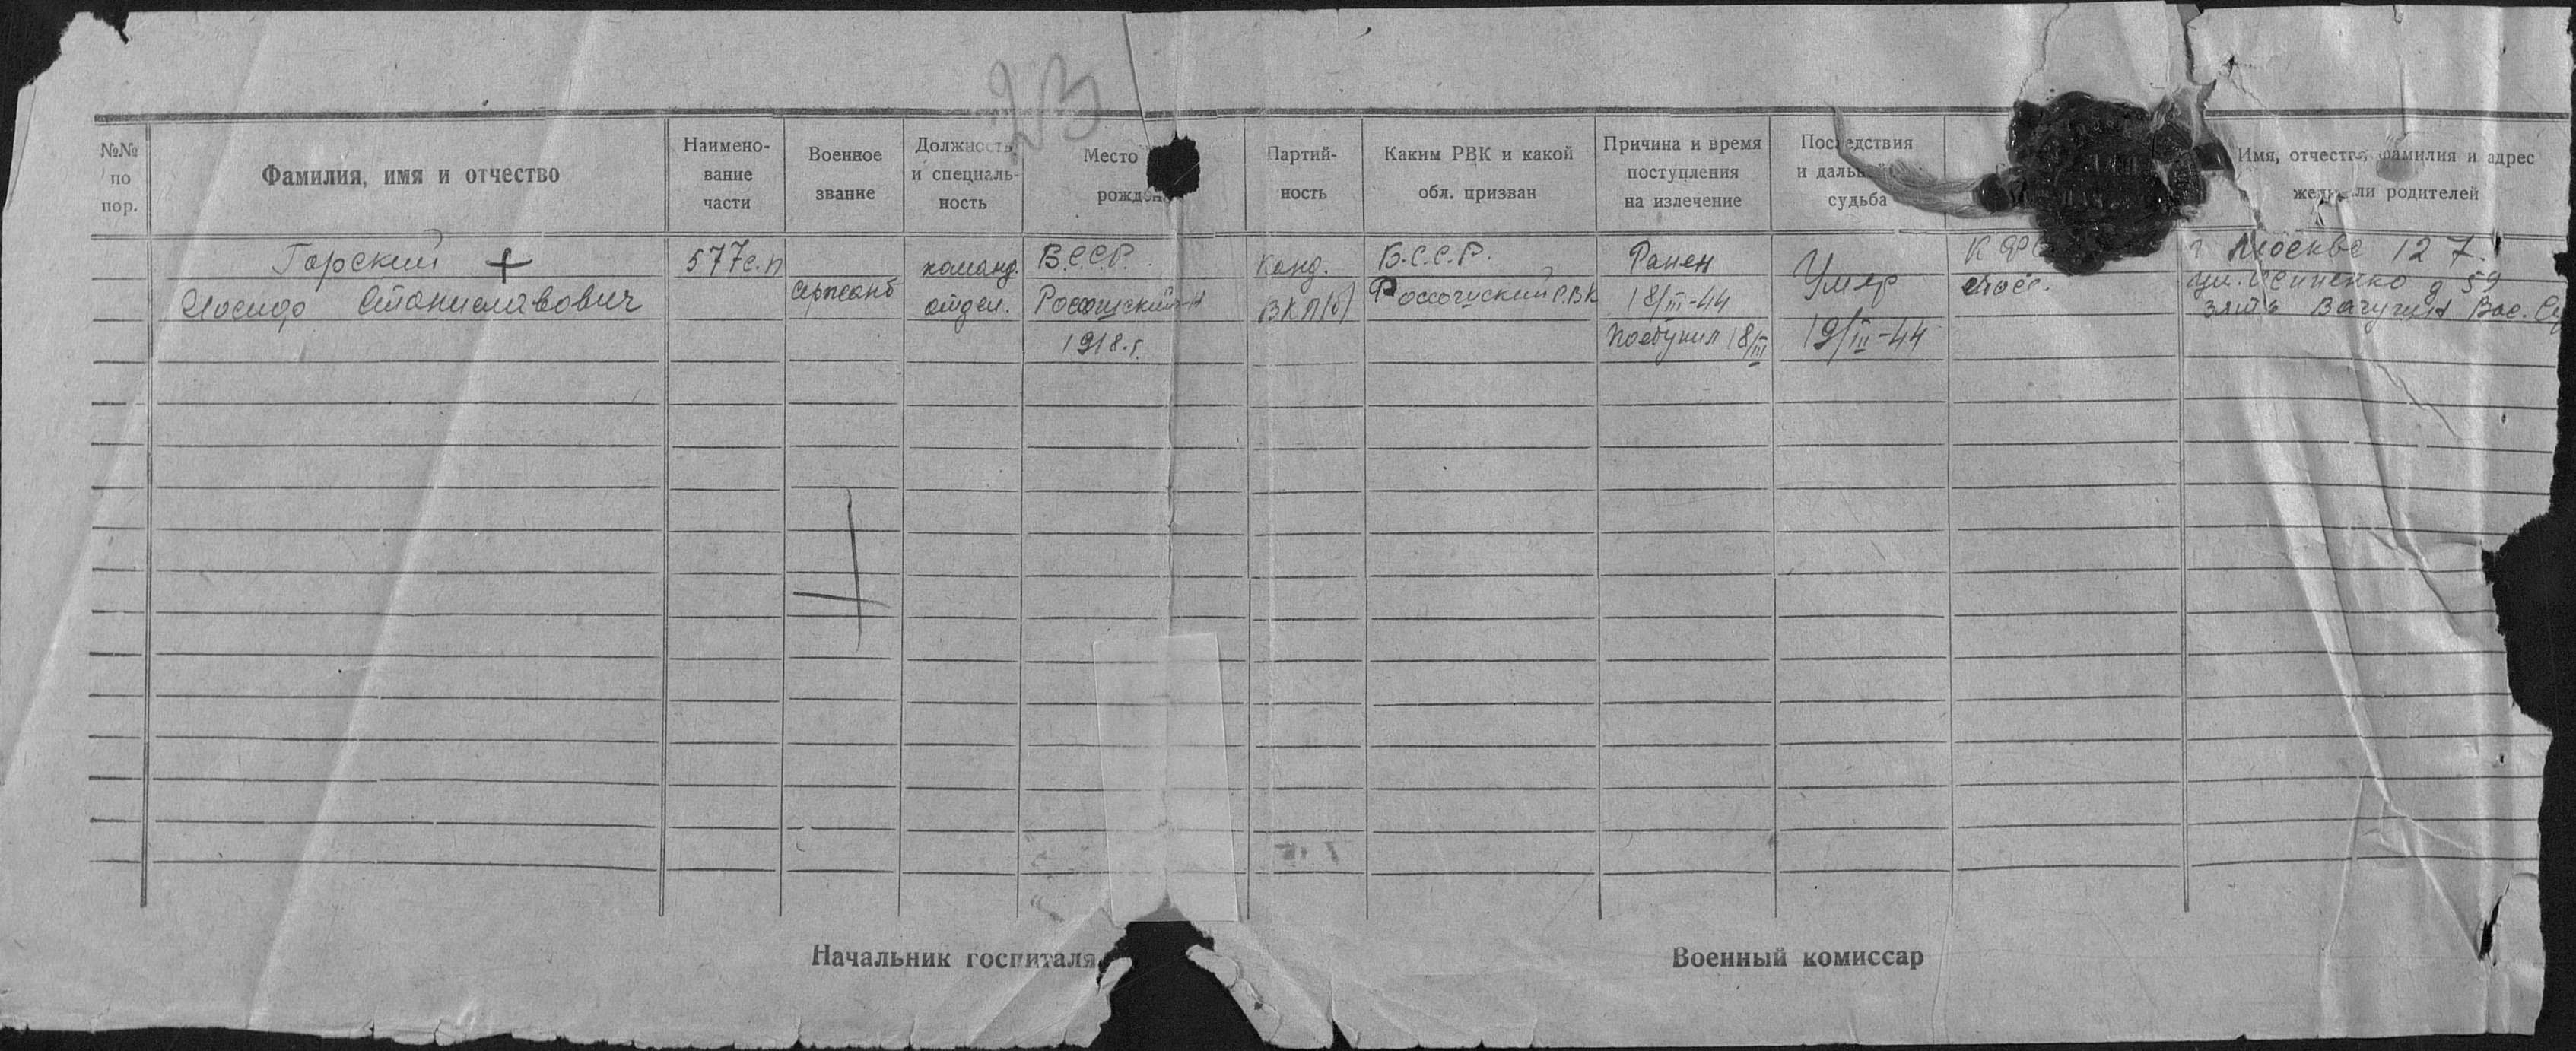 23
№№ по пор.
Фамилия, имя и отчество
Наимено-
вание
части
Военное
звание
Должность
и специаль-
ность
Место
рожден
Партий-
ность
Каким РВК и какой
обл. призван
Причина и время
поступления
на излечение
Последствия
и даль
судьба
Имя, отчество, фамилия и адрес
жены или родителей
Горский +
Иосиф Станиславович
577 с.п
сержант
команд.
отдел.
Б.С.С.Р.
1918.г.
Канд.
ВКП(б)
Б.С.С.Р.
Ранен
18/III-44
Поступил 18/III
Умер
19/III-44
г Москва 127.
ул. Осипенко д 59
зять Вас.
Начальник госпиталя
Военный комиссар